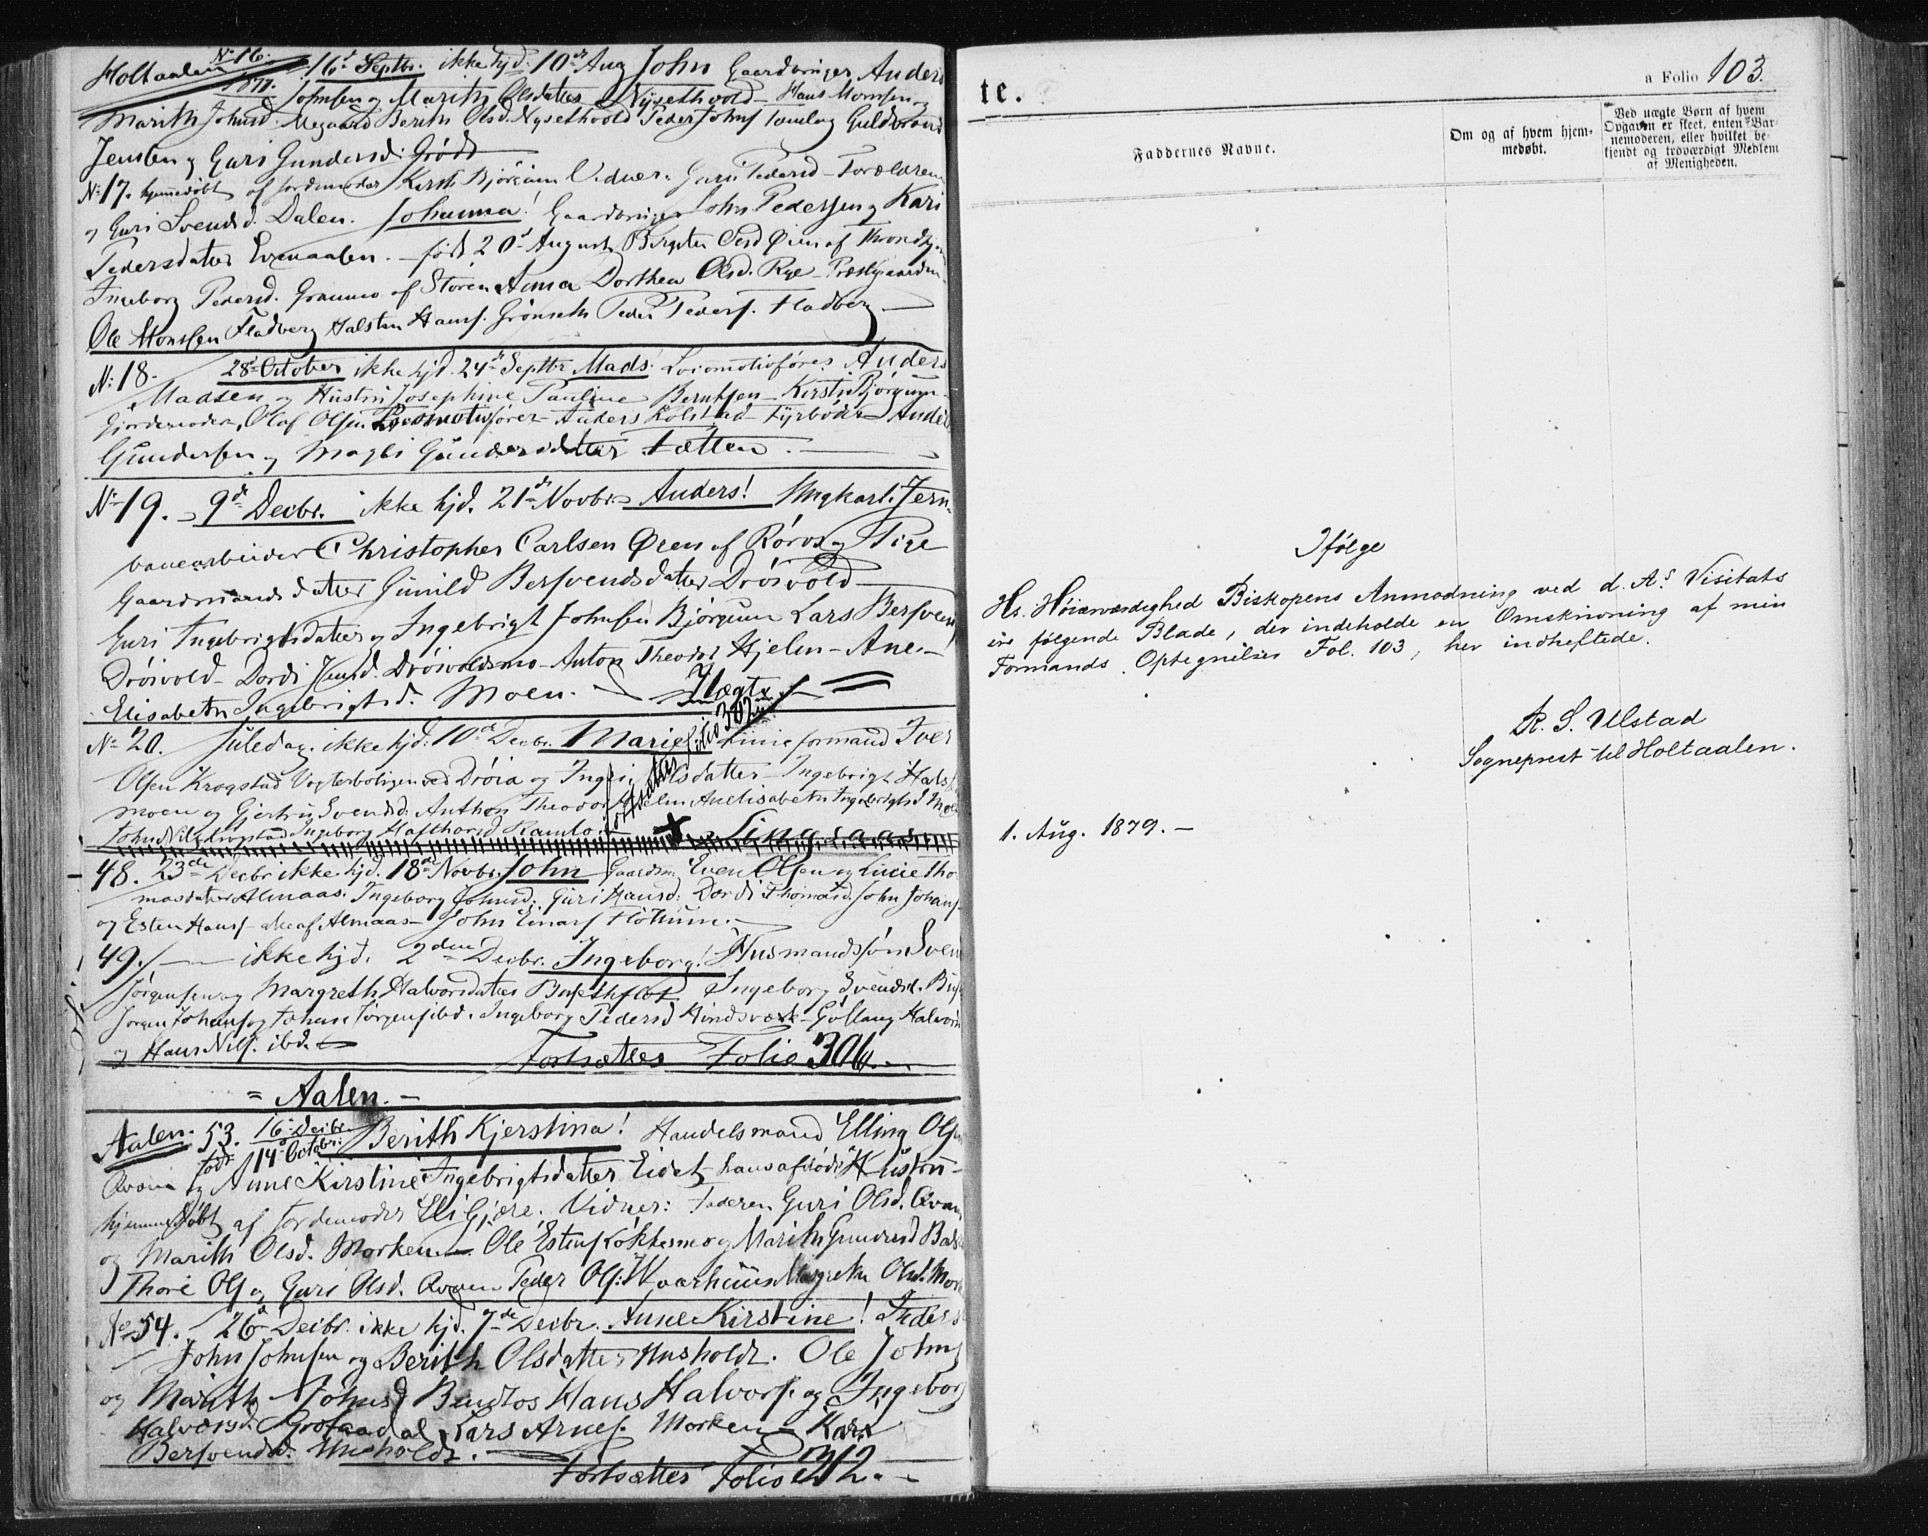 Holtaalen No 16. 1877. 16de Septbr. ikke hjd. 10de Aug John Gaardbruger Anders
Johnsen og Marith Olsdatter Nysethvold - Hans Monsen og
Marith Johnsd. Megaard Berith Olsd. Nysethvold Peder Johns Guldbrand
Jensen og Guri Gundersd:
No 17. hjemmedøbt af Jordemoder Kirsti Bjørgum Vidner: Guri Pedersd - Forældrene
og Guri Svendsd. Dalen. Johanna! Gaardbruger John Pedersen og Kari
Pedersdatter - født 20de August Birgitte Olsd Øien af Throndhjem
Ingeborg Pedersd. af Støren Anna Dorthea Olsd. Rye - Præstgaarden
Ole Monssen Fladberg Halsten Hansf. Grønseth Peder Pedersf. Fladberg -
No 18. 28de October ikke hjd. 24de Septbr Mads! Locomotivfører Anders
Madsen og Hustru Josephine Pauline Berntsen - Kirsti Bjørgum
Gjordemoder, Olaf Olsen Locomotivfører - Anders Kolstad - Fyrbøder Anders
Gundersen og Magli Gundersdatter Tætten. -
No 19. - 9de Decbr. ikke hjd. 21de Novbr. Anders! Ungkarl. Jern-
banearbeider Christopher Carlsen Øren af Røros og Pige
Gaardmandsdatter Gunild Bersvendsdatter Drøivold -
Guri Ingebrigtsdatter og Ingebrigt Johnsen Bjørgum Lars Bersvends
Drøivold - Dordi Jensd. Drøivoldsmo - Anton Theodor Hjelm - Ane -
Elisabeth Ingebrigtsd. Moen. - Uægte
No 20. Juledag. ikke hjd: 10de Decbr. Marie! Linieformand Iver
Fortsættes Folio 302
Olsen Krogstad Vogterboligen ved Drøia og Olsdatter - Ingebrigt Hals
moen og Gjertru Svendsd. Anthon Theodor Hjelm Anelisabeth Ingebrigtsd Moen
John Nils Krogstad Ingeborg Hafthorsd Ramlo. - + Singsaas
48. 23de Decbr ikke hjd. 18de Novbr. John Gaardm. Even Olsen og Lucie Tho
masdatter Almaas. Ingeborg Johnsd. Guri Hansd. Dordi Thomasd. John Johans
og Esten Hansf - alle af Almaas - John Einarf Flottum. -
49. - ikke hjd. 2den Decbr. Ingeborg! Husmandssøn Svend
Jørgensen og Margreth Halvorsdatter Ingeborg Svendsd.
Jørgen Johansf og Johan Jørgensf ibd. Ingeborg Pedersd Kindsvæk - Gollaug Halvors
og Hans Nilsf. ibd. -
Fortsættes Folio 306. -
= Aalen. -
Aalen. 53. 16de Decbr. Berith Kjerstina! Handelsmand Elling Olsen
født 14de Octobr:
Qvam og Anne Kirstine Ingebrigtsdatter Eidet hans afdøde Hustru -
hjemmedøbt af Jordemoder Eli Gjøre. Vidner: Faderen Guri Olsd. Qvam
og Marith Olsd. Morken - Ole Estenf Kokkesmo og Marith Gundersd
Thore Olf og Guri Olsd. Qvam Peder Olf: Kvarhuus Margrethe Olsd. Mork
No 54. 26de Decbr. ikke hjd. 7de Decbr. Anne Kirstine! Inderst
John Johnsen og Berith Olsdatter Unsholdt. Ole Johns
og Marith Johnsd Bendtos Hans Halvorf. og Ingeborg
Halvorsd. Lars Arnef. Morken - Kari
Bersvendsd. Unsholdt. -
Fortsættes Folio 312. -
te.
a Folio 103.
Faddernes Navne.
Om og af hvem hjem-
medøbt.
Ved uægte Børn af hvem
Opgaven er skeet, enten Bar-
nemoderen, eller hvilket be-
kjendt og troværdigt Medlem
af Menigheden.
Ifølge
Hs. Høiærværdighed Biskopens Anmodning ved d. As Visitats
ere følgende Blade, der indeholde en Omskrivning af min
Formands Optegnelser Fol. 103, her indheftede.
R. S. Ulstad
Sogneprest til Holtaalen.
1. Aug. 1879. -